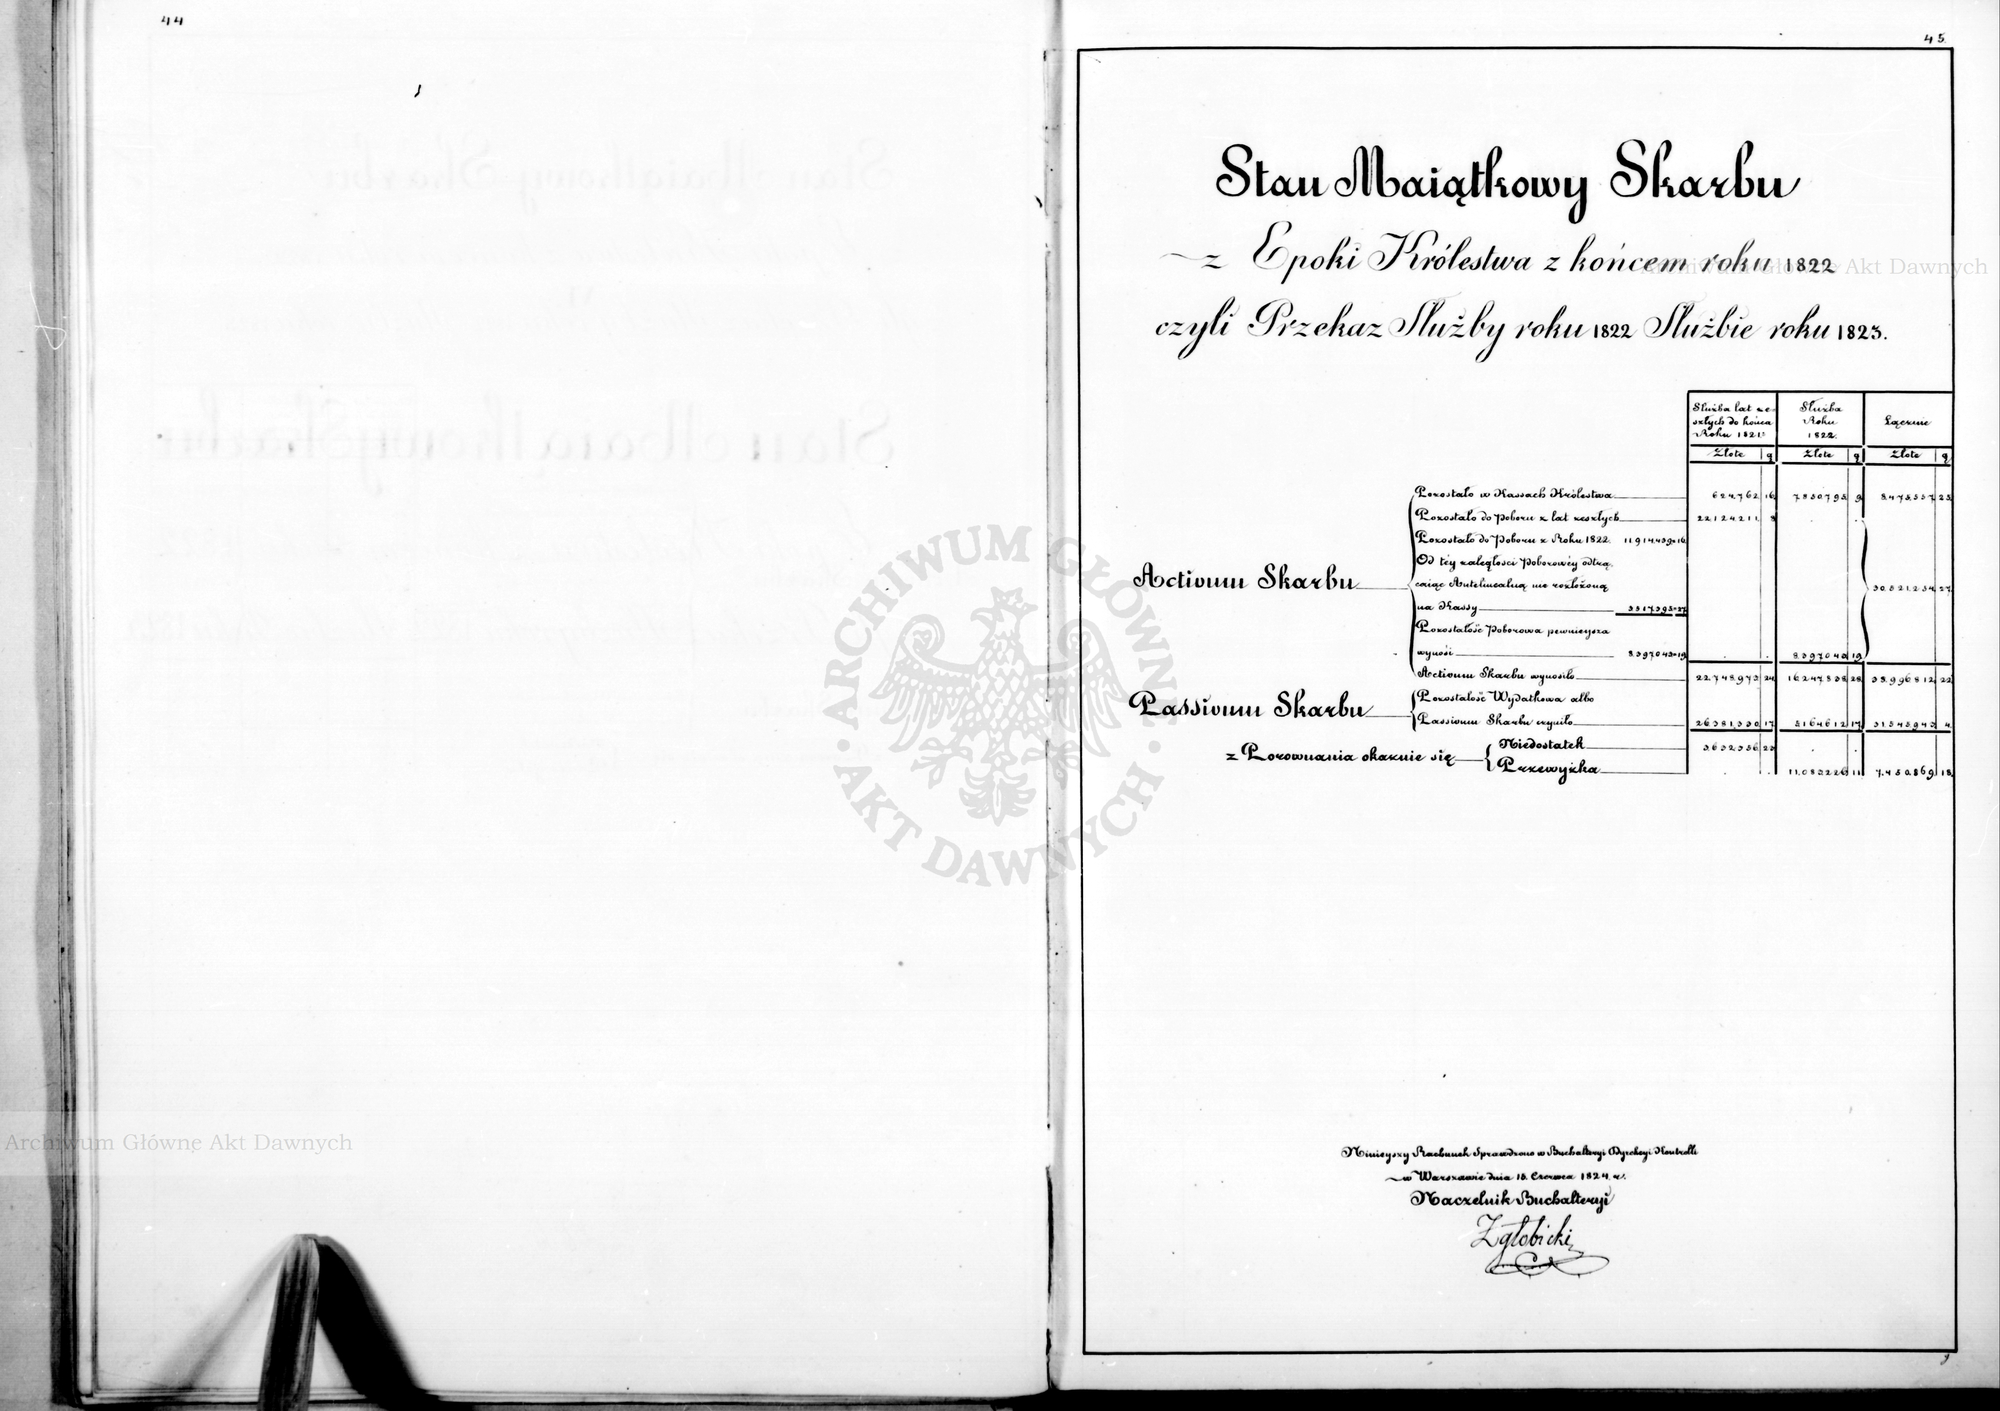 44
45
Stan Maiątkowy Skarbu
z Epoki Królestwa z końcem roku 1822
czyli Przekaz Służby roku 1822 Służbie roku 1823.
Służba lat ze- Służba Łącznie
szłych do końca Roku
Roku 1821. 1822.
Złote g Złote g Złote g
Pozostało w Kassach Królestwa 624762 16 7850795 9 8475557 25
Pozostało do Poboru z lat zeszłych 22124211 8
Pozostało do Poboru z Roku 1822. 11914439 16
Od téy zaległości Poborowéy odtrą-
Activum Skarbu caiąc Antelinealną nie rozłożoną 30521254 27
na Kassy 3517395 27
Pozostałość Poborowa pewnieysza
wynosi 8397043 19 8397043 19
Activum Skarbu wynosiło 22748973 24 16247838 28 38996812 22
Passivum Skarbu Pozostałość Wydatkowa albo
Passivum Skarbu czyniło 26381330 17 5164612 17 31545943 4
z Porownania okazuie się Niedostatek 3632356 23
Przewyżka 11083226 11 7450869 18
Ninieyszy Rachunek Sprawdzono w Buchalteryi Dyrekcyi Kontrolli
w Warszawie dnia 15 Czerwca 1824 r.
Naczelnik Buchalteryi
Zgłobicki
Archiwum Główne Akt Dawnych
ARCHIWUM GŁÓWNE
AKT DAWNYCH
Archiwum Główne Akt Dawnych